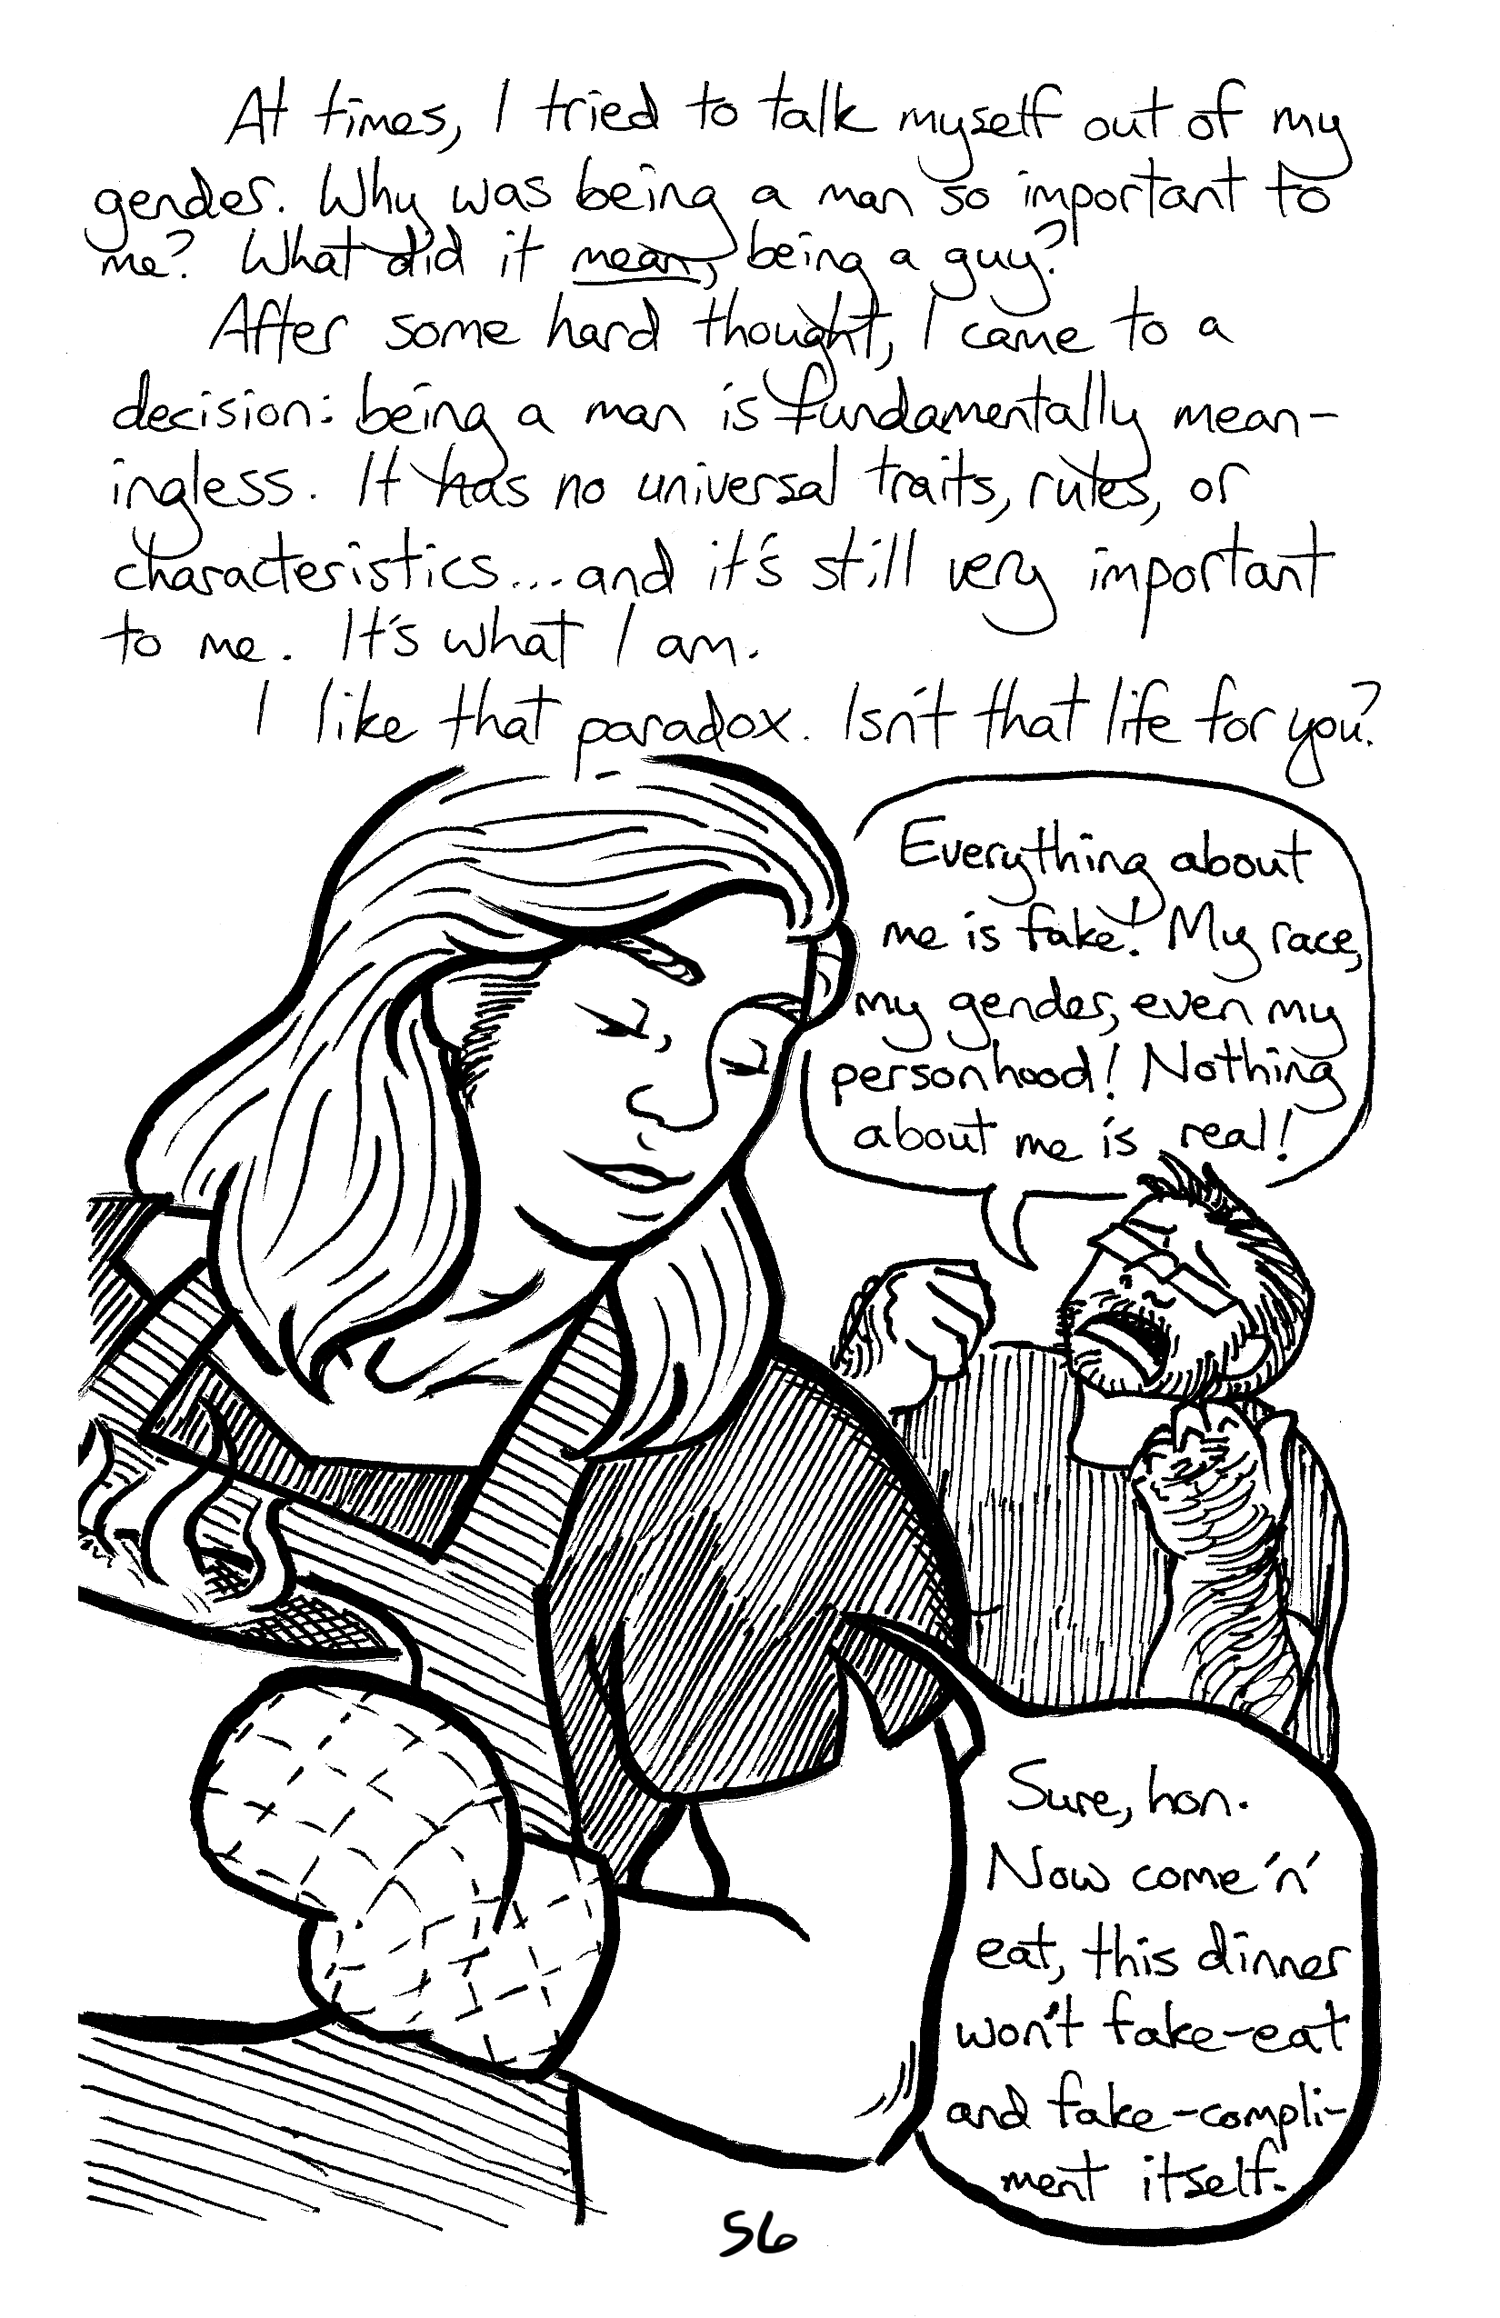 At times, I tried to talk myself out of my
gender. Why was being a man so important to
me? What did it mean, being a guy?
After some hard thought, I came to a
decision: being a man is fundamentally mean-
ingless. It has no universal traits, rules, or
characteristics...and it's still very important
to me. It's what I am.
I like that paradox. Isn't that life for you?
Everything about
me is fake! My race,
my gender, even my
personhood! Nothing
about me is real!
Sure, hon.
Now come 'n'
eat, this dinner
won't fake-eat
and fake-compli-
ment itself.
56